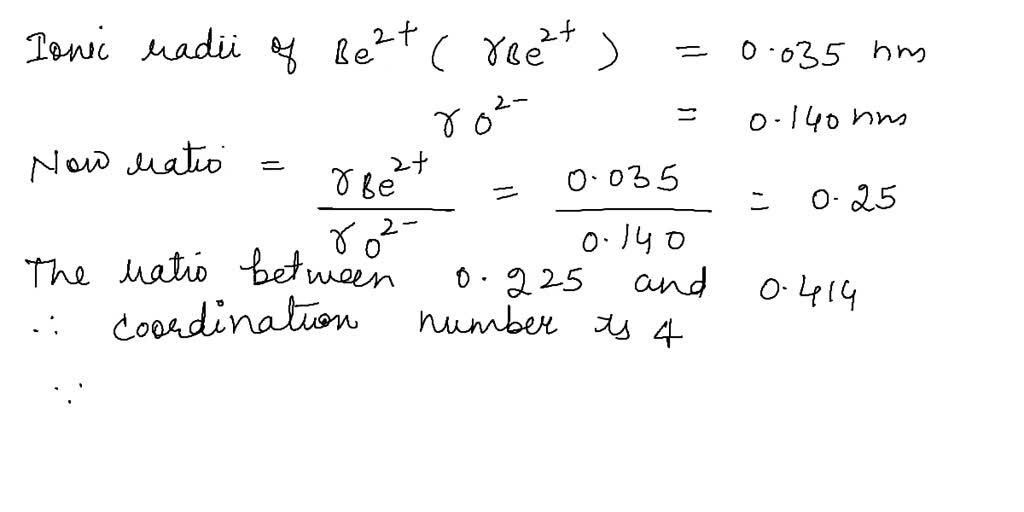 Ionic radii of Be²⁺ ( rBe²⁺ ) = 0.035 nm
r O²⁻ = 0.140 nm
Now ratio = rBe²⁺ / rO²⁻ = 0.035 / 0.140 = 0.25
The ratio between 0.225 and 0.414
∴ coordination number is 4
∵